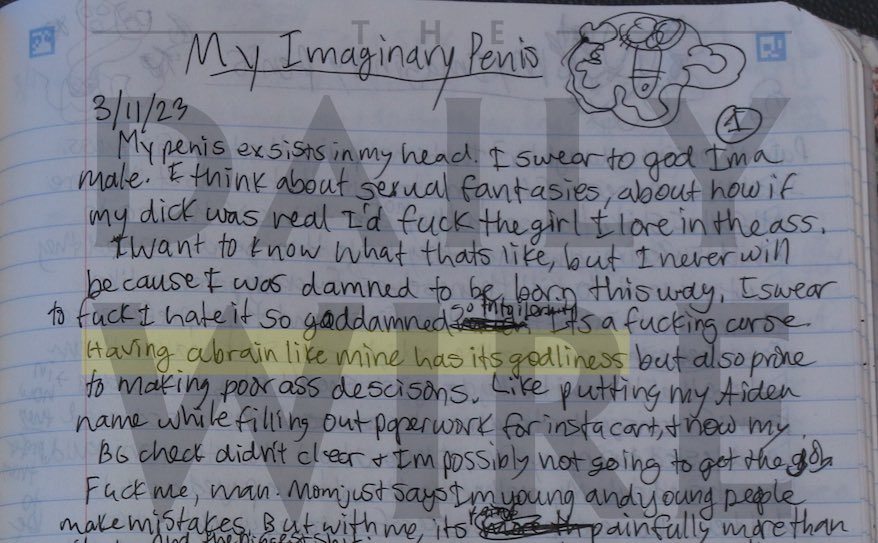 THE
DAILY
WIRE
My Imaginary Penis
3/11/23
1
My penis exsists in my head. I swear to god I'm a
male. I think about sexual fantasies, about how if
my dick was real I'd fuck the girl I love in the ass.
I want to know what thats like, but I never will
because I was damned to be born this way. I swear
to fuck I hate it so goddamned Its a fucking curse.
Having a brain like mine has its godliness but also prone
to making poor ass descisons. Like putting my Aiden
name while filling out paperwork for instacart, + now my
BG check didn't clear + I'm possibly not going to get the job
Fuck me, man. Mom just says I'm young and young people
make mistakes. But with me, its painfully more than